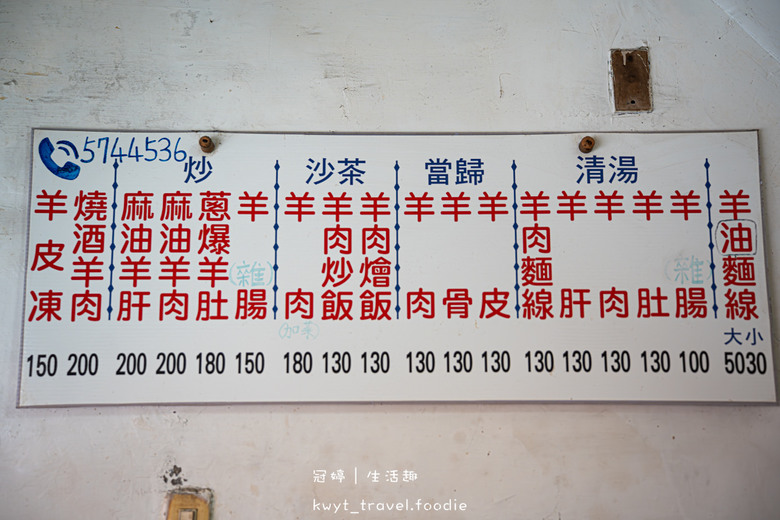 5744536
羊皮凍 150
燒酒羊肉 200
炒
麻油羊肝 200
麻油羊肉 200
蔥爆羊肚 180
羊(雜)腸 150
沙茶
羊肉 180
(加菜)
羊肉炒飯 130
羊肉燴飯 130
當歸
羊肉 130
羊骨 130
羊皮 130
清湯
羊肉麵線 130
羊肝 130
羊肉 130
羊肚 130
羊(雜)腸 100
羊油麵線
大小
5030
冠婷｜生活趣
kwyt_travel.foodie